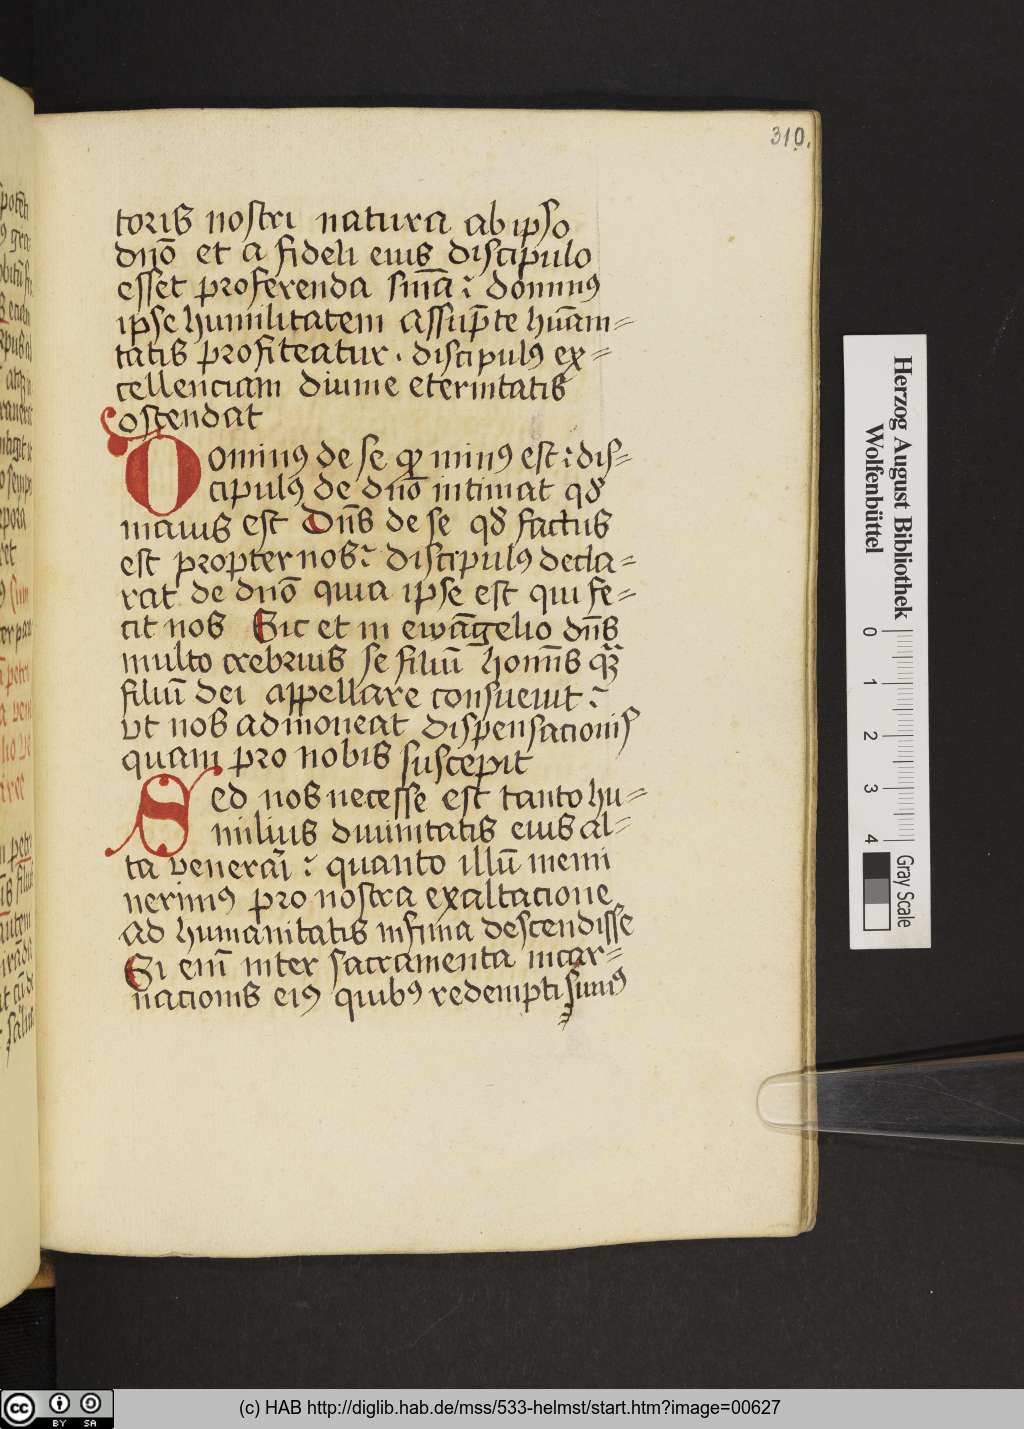 310.
toris nostri natura ab ipso
dno et a fideli eius discipulo
esset proferenda dominus
ipse humilitatem assupte huam-
tatis profiteatur. discipulus ex-
cellenciam diuine eternitatis
ostendat
Dominus de se minus est dis-
cipulus de dno intimat qd
maius est Dns de se qd factus
est propter nos discipulus decla-
rat de dno quia ipse est qui fe-
cit nos Sic et in ewangelio dns
multo crebrius se filiu homis
filiu dei appellare consueuit
vt nos admoneat dispensacionis
quam pro nobis suscepit
Sed nos necesse est tanto hu-
milius diuinitatis eius al-
ta venerari quanto illu memi
nerimus pro nostra exaltacione
ad humanitatis infima descendisse
Si eni inter sacramenta incar-
nacionis eius quibus redempti sumus
Herzog August Bibliothek
Wolfenbüttel
0 1 2 3 4
Gray Scale
cc BY SA
(c) HAB http://diglib.hab.de/mss/533-helmst/start.htm?image=00627